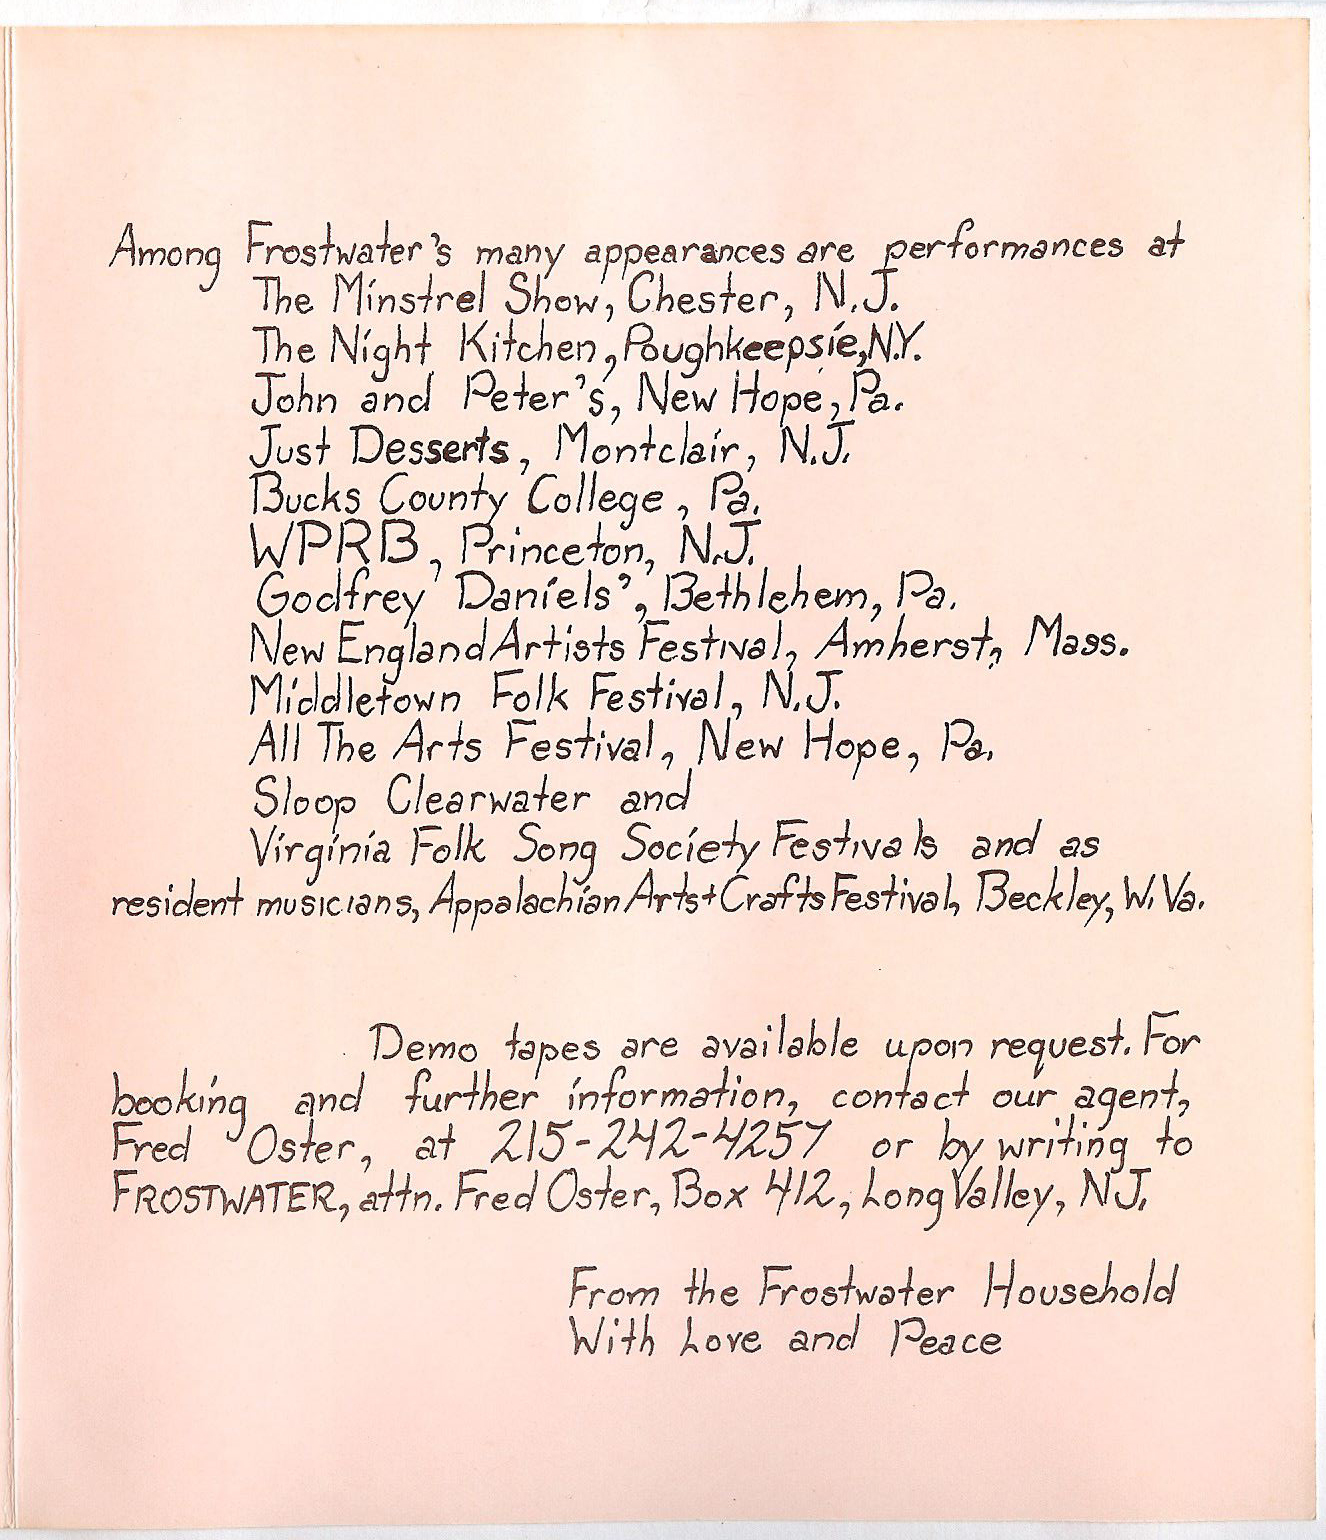 Among Frostwater's many appearances are performances at
The Minstrel Show, Chester, N.J.
The Night Kitchen, Poughkeepsie, N.Y.
John and Peter's, New Hope, Pa.
Just Desserts, Montclair, N.J.
Bucks County College, Pa.
WPRB, Princeton, N.J.
Godfrey Daniels', Bethlehem, Pa.
New England Artists Festival, Amherst, Mass.
Middletown Folk Festival, N.J.
All The Arts Festival, New Hope, Pa.
Sloop Clearwater and
Virginia Folk Song Society Festivals and as
resident musicians, Appalachian Arts+Crafts Festival, Beckley, W. Va.
Demo tapes are available upon request. For
booking and further information, contact our agent,
Fred Oster, at 215-242-4257 or by writing to
FROSTWATER, attn. Fred Oster, Box 412, Long Valley, NJ.
From the Frostwater Household
With Love and Peace